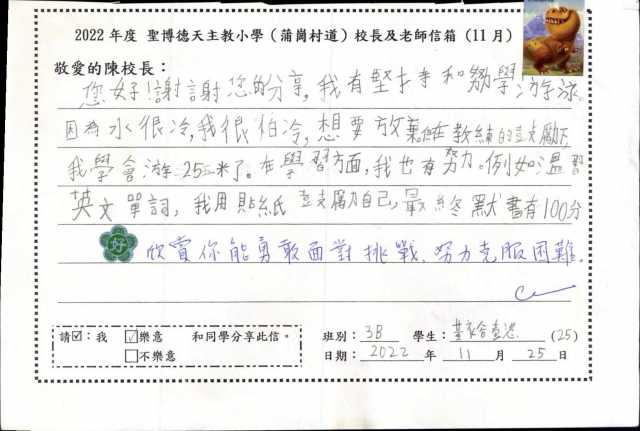 2022 年度 聖博德天主教小學（蒲崗村道）校長及老師信箱（11月）
敬愛的陳校長：
您好！謝謝您的分享，我有堅持和勤學游泳。
因為水很冷，我很怕冷，想要放棄但在教練的鼓勵下
我學會游25米了。在學習方面，我也有努力。例如溫習
英文單詞，我用貼紙鼓勵自己，最終默書有100分
好 欣賞你能勇敢面對挑戰、努力克服困難。
請☑：我 ☑樂意 和同學分享此信。
□不樂意
班別：3B 學生： (25)
日期：2022 年 11 月 25 日